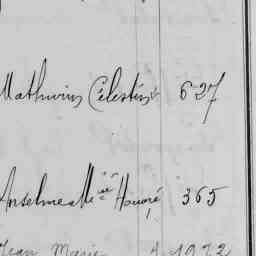 Mathurin Célestin 627
Anselme M^ie Honoré 365
Jean Marie A 1922